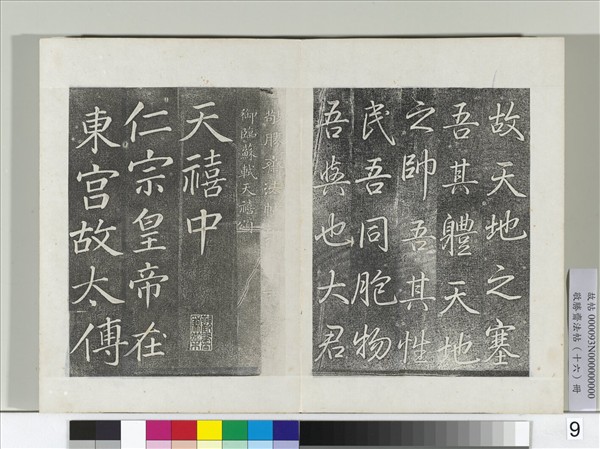 故天地之塞
吾其體天地
之帥吾其性
民吾同胞物
吾與也大君
敬勝齋法帖
御臨蘇軾天禧頌
天禧中
仁宗皇帝在
東宮故太傅
故帖 000093N000000000
敬勝齋法帖(十六)冊
9